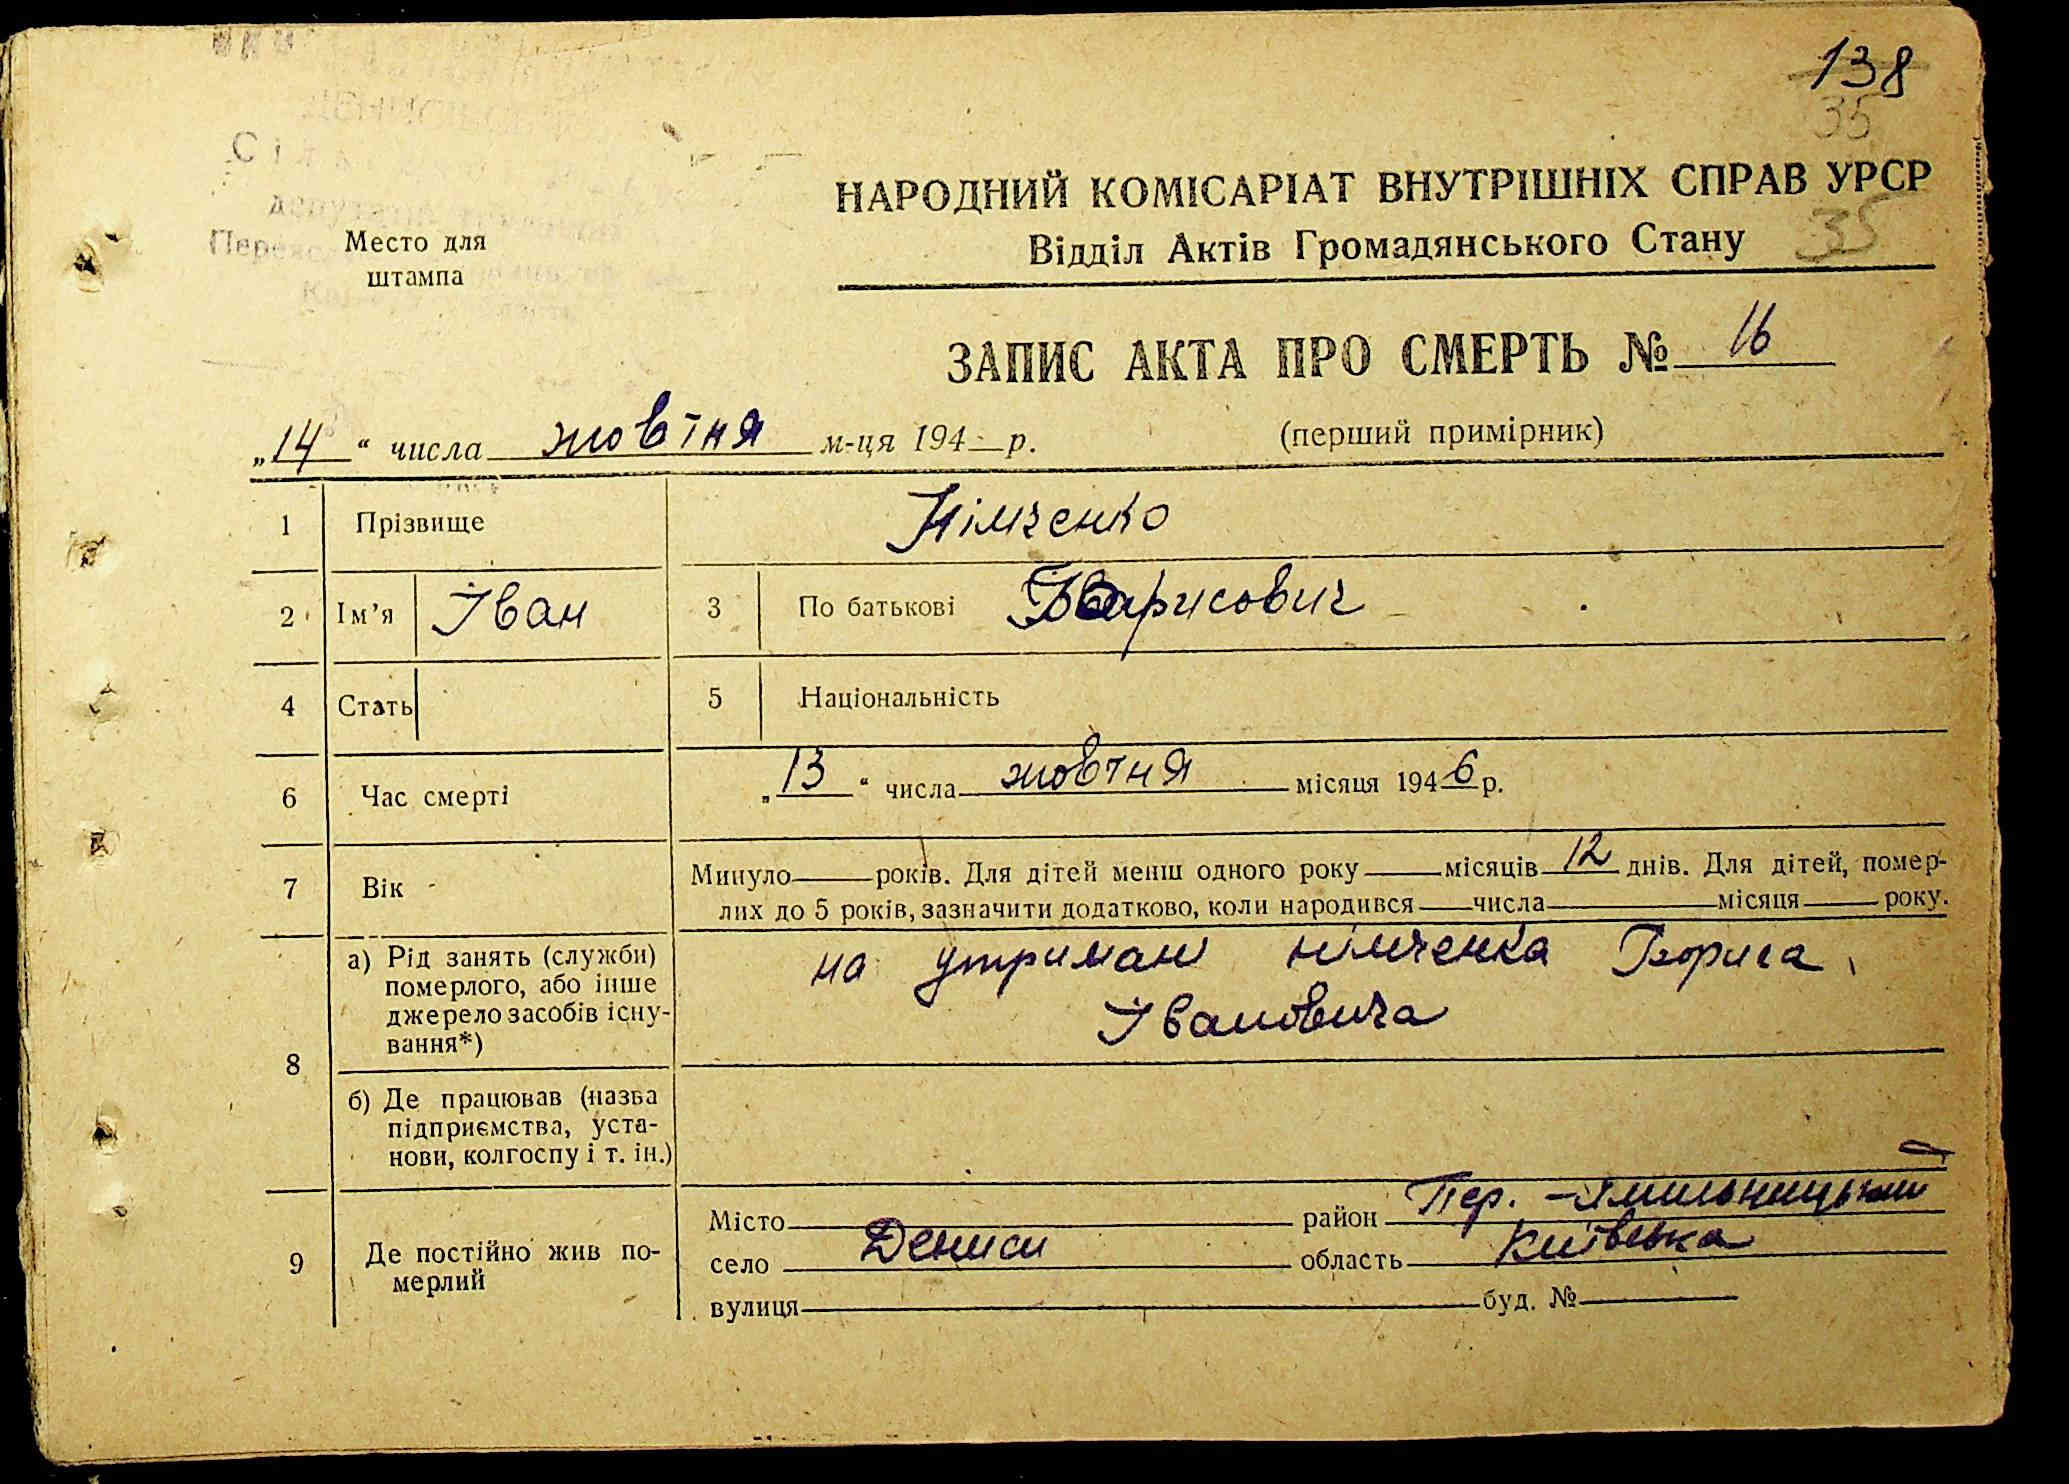 138
35
НАРОДНИЙ КОМІСАРІАТ ВНУТРІШНІХ СПРАВ УРСР
35
Відділ Актів Громадянського Стану
Место для
штампа
ЗАПИС АКТА ПРО СМЕРТЬ № 16
„14“ числа жовтня м-ця 194 р. (перший примірник)
1 Прізвище Німченко
2 Ім’я Іван 3 По батькові Борисович
4 Стать 5 Національність
6 Час смерті „13“ числа жовтня місяця 1946 р.
7 Вік Минуло років. Для дітей менш одного року місяців 12 днів. Для дітей, помер-
лих до 5 років, зазначити додатково, коли народився числа місяця року.
8 а) Рід занять (служби)
померлого, або інше
джерело засобів існу-
вання*)
на утриман німченка Бориса
Івановича
б) Де працював (назва
підприємства, уста-
нови, колгоспу і т. ін.)
9 Де постійно жив по-
мерлий
Місто район Пер.-Хмильницький
село Дениси область Київська
вулиця буд. №